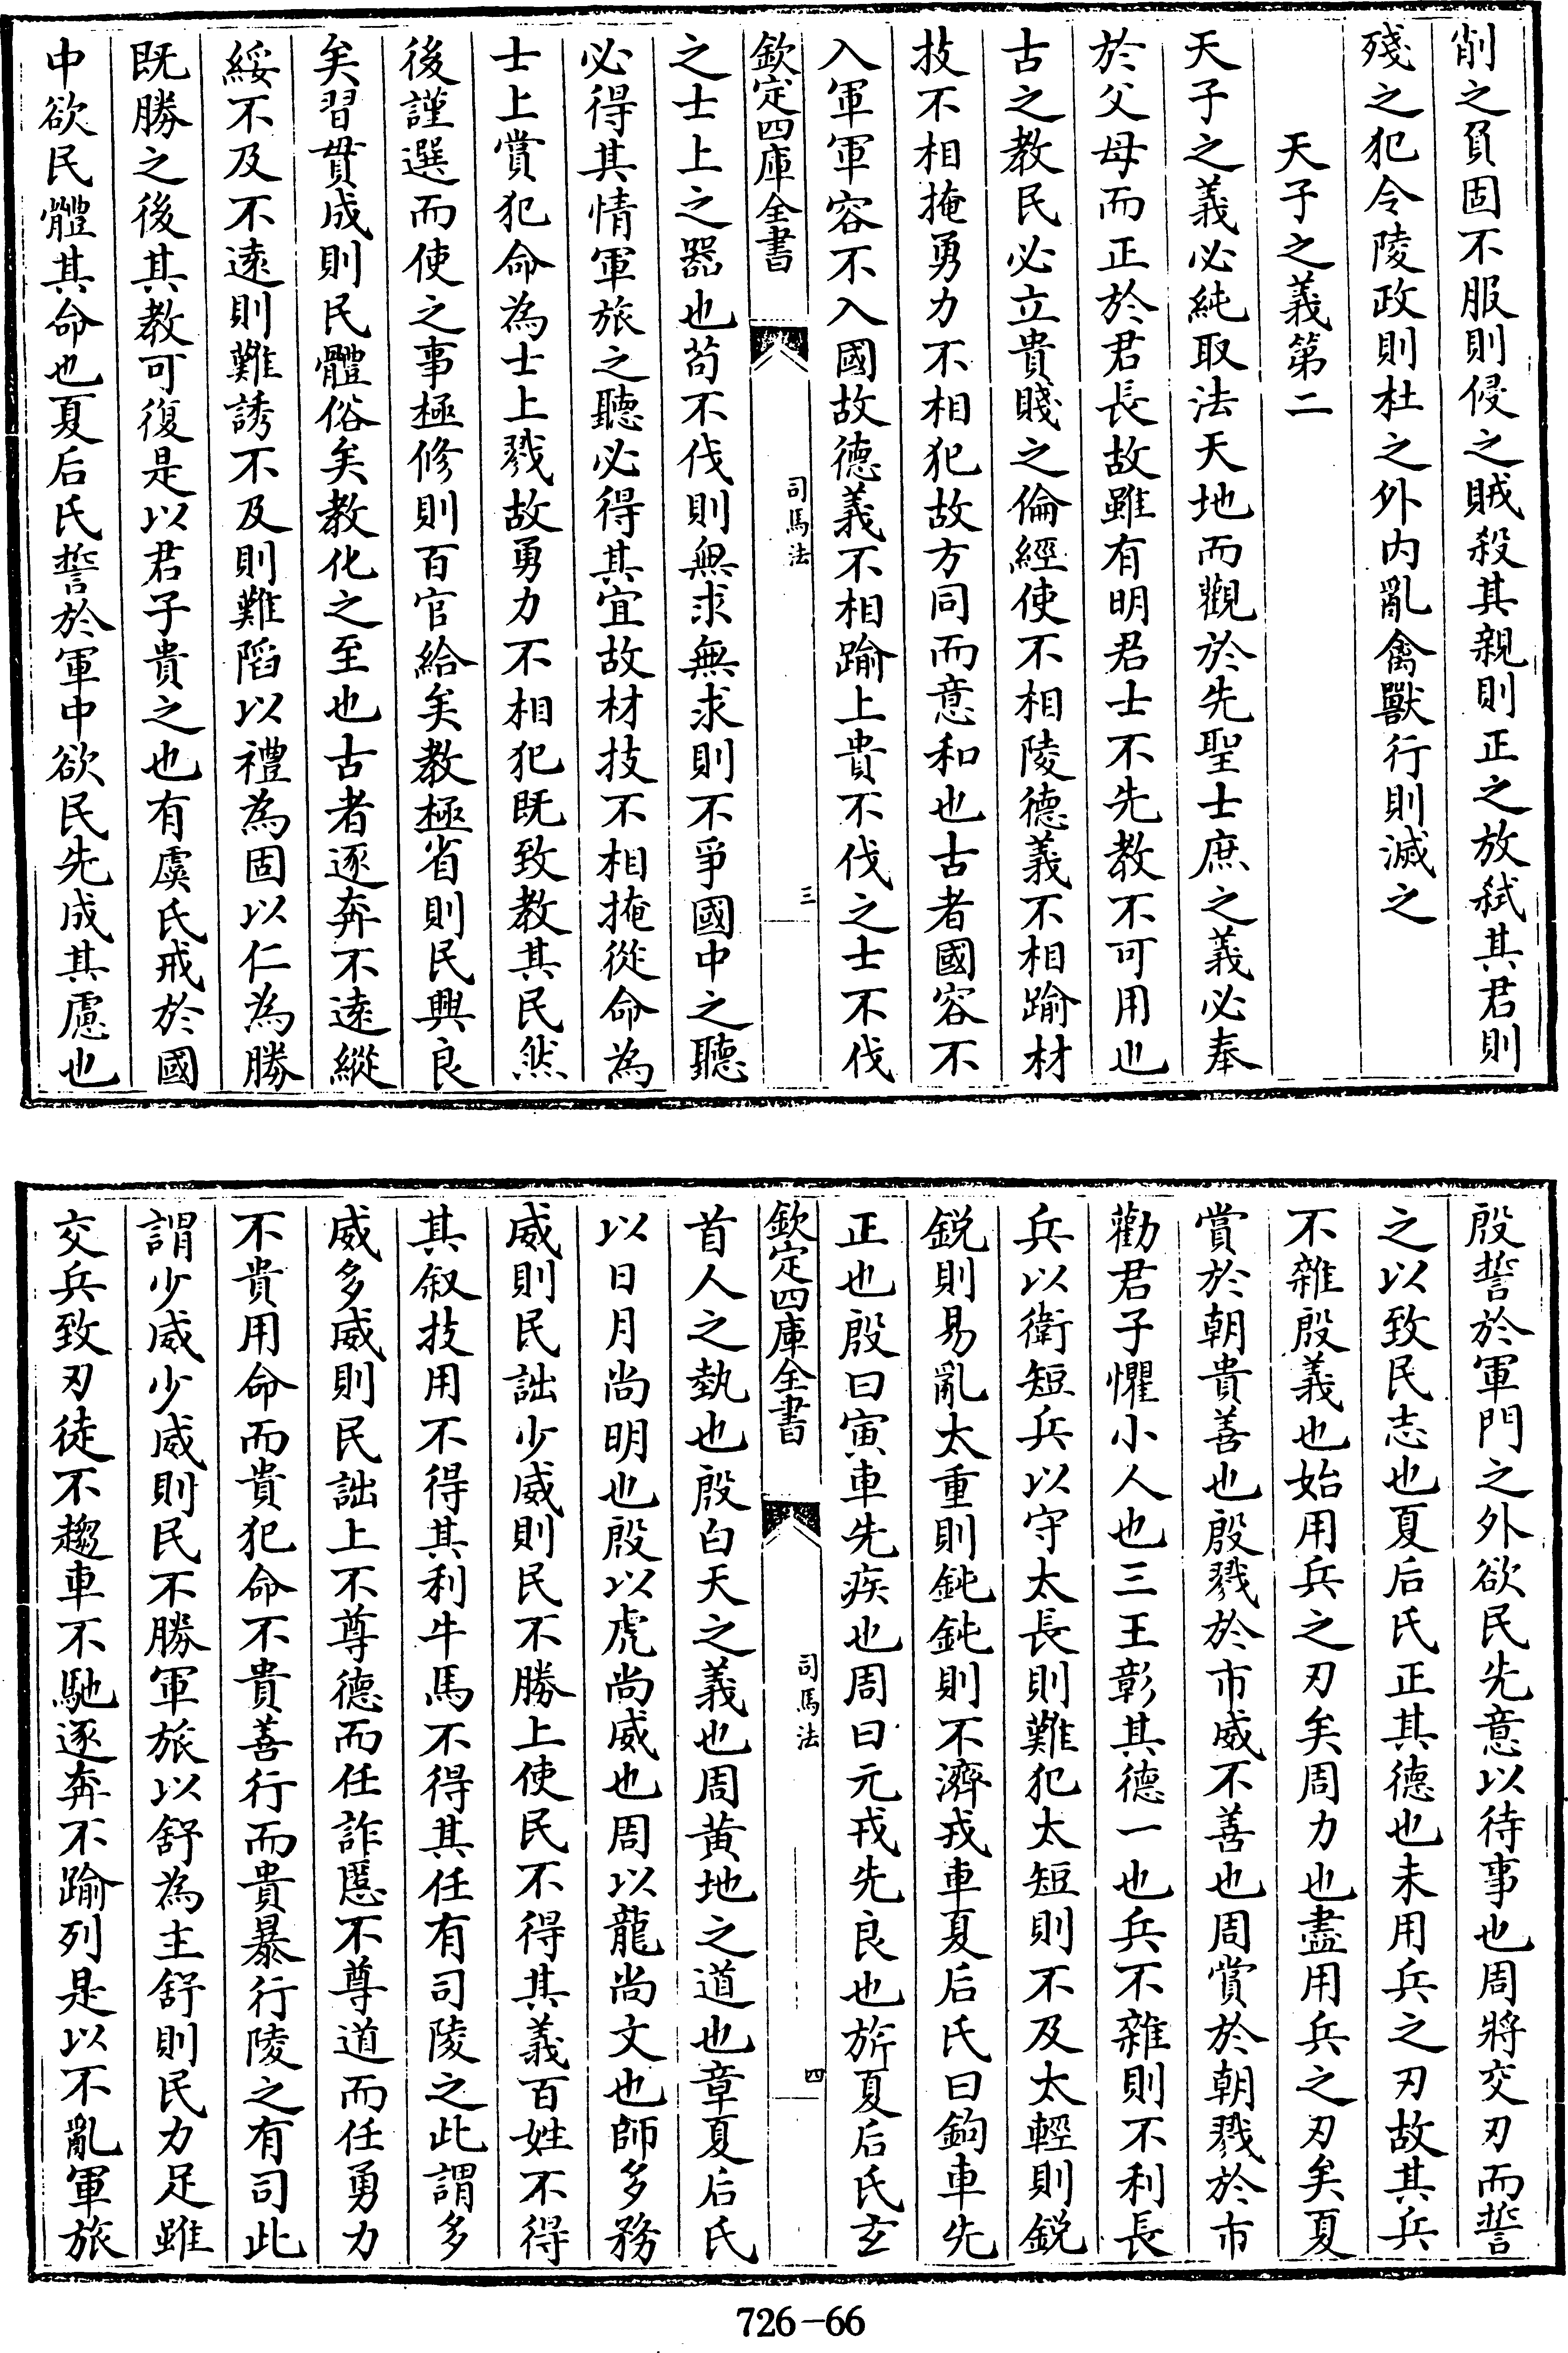 削之負固不服則侵之賊殺其親則正之放弒其君則
殘之犯令陵政則杜之外内亂禽獸行則滅之
天子之義第二
天子之義必純取法天地而觀於先聖士庶之義必奉
於父母而正於君長故雖有明君士不先教不可用也
古之教民必立貴賤之倫經使不相陵德義不相踰材
技不相掩勇力不相犯故方同而意和也古者國容不
入軍軍容不入國故德義不相踰上貴不伐之士不伐
欽定四庫全書
司馬法
三
之士上之器也苟不伐則無求無求則不爭國中之聽
必得其情軍旅之聽必得其宜故材技不相掩從命為
士上賞犯命為士上戮故勇力不相犯既致教其民然
後謹選而使之事極修則百官給矣教極省則民興良
矣習貫成則民體俗矣教化之至也古者逐奔不遠縱
綏不及不遠則難誘不及則難陷以禮為固以仁為勝
既勝之後其教可復是以君子貴之也有虞氏戒於國
中欲民體其命也夏后氏誓於軍中欲民先成其慮也
殷誓於軍門之外欲民先意以待事也周將交刃而誓
之以致民志也夏后氏正其德也未用兵之刃故其兵
不雜殷義也始用兵之刃矣周力也盡用兵之刃矣夏
賞於朝貴善也殷戮於市威不善也周賞於朝戮於市
勸君子懼小人也三王彰其德一也兵不雜則不利長
兵以衛短兵以守太長則難犯太短則不及太輕則鋭
鋭則易亂太重則鈍鈍則不濟戎車夏后氏曰鉤車先
正也殷曰寅車先疾也周曰元戎先良也旂夏后氏玄
欽定四庫全書
司馬法
四
首人之埶也殷白天之義也周黄地之道也章夏后氏
以日月尚明也殷以虎尚威也周以龍尚文也師多務
威則民詘少威則民不勝上使民不得其義百姓不得
其叙技用不得其利牛馬不得其任有司陵之此謂多
威多威則民詘上不尊德而任詐慝不尊道而任勇力
不貴用命而貴犯命不貴善行而貴暴行陵之有司此
謂少威少威則民不勝軍旅以舒為主舒則民力足雖
交兵致刃徒不趨車不馳逐奔不踰列是以不亂軍旅
726-66